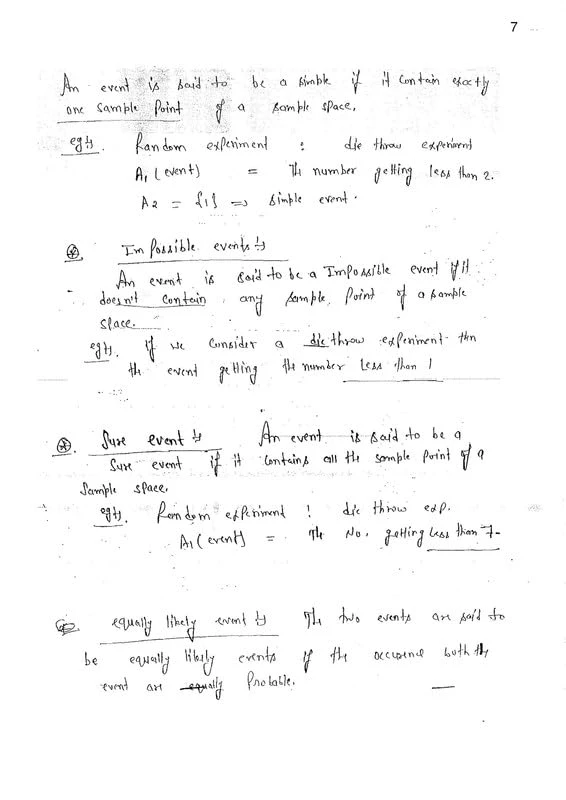 7
An event is said to be a simple if it contain exactly
one sample point of a sample space.
eg:-. Random experiment : die throw experiment
A1 (event) = The number getting less than 2.
A2 = {1} => simple event.
Impossible events :-
An event is said to be a Impossible event if it
doesn't contain any sample point of a sample
space.
eg:-. if we consider a die throw experiment then
the event getting the number less than 1
Sure event :- An event is said to be a
Sure event if it contains all the sample point of a
Sample space.
eg:-. Random experiment : die throw exp.
A1 (event) = The No. getting less than 7-
equally likely event :- The two events are said to
be equally likely events if the occurence both the
event are equally Probable.